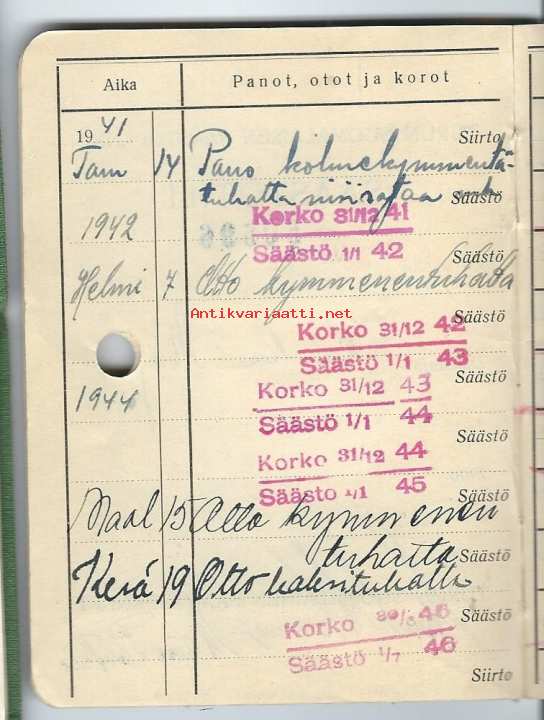 Aika Panot, otot ja korot
1941 Siirto
Tam 14 Pano kolmekymmentä-
tuhatta viisisataa mk Säästö
Korko 31/12 41
1942
Säästö 1/1 42 Säästö
Helmi 7 Otto kymmenentuhatta
Antikvariaatti.net Säästö
Korko 31/12 42
Säästö 1/1 43
Korko 31/12 43 Säästö
1944
Säästö 1/1 44
Säästö
Korko 31/12 44
Säästö 1/1 45 Säästö
Maal 15 Otto kymmenen
tuhatta Säästö
Kesä 19 Otto kaksituhatta
Korko 30/6 46 Säästö
Säästö 1/7 46
Siirto